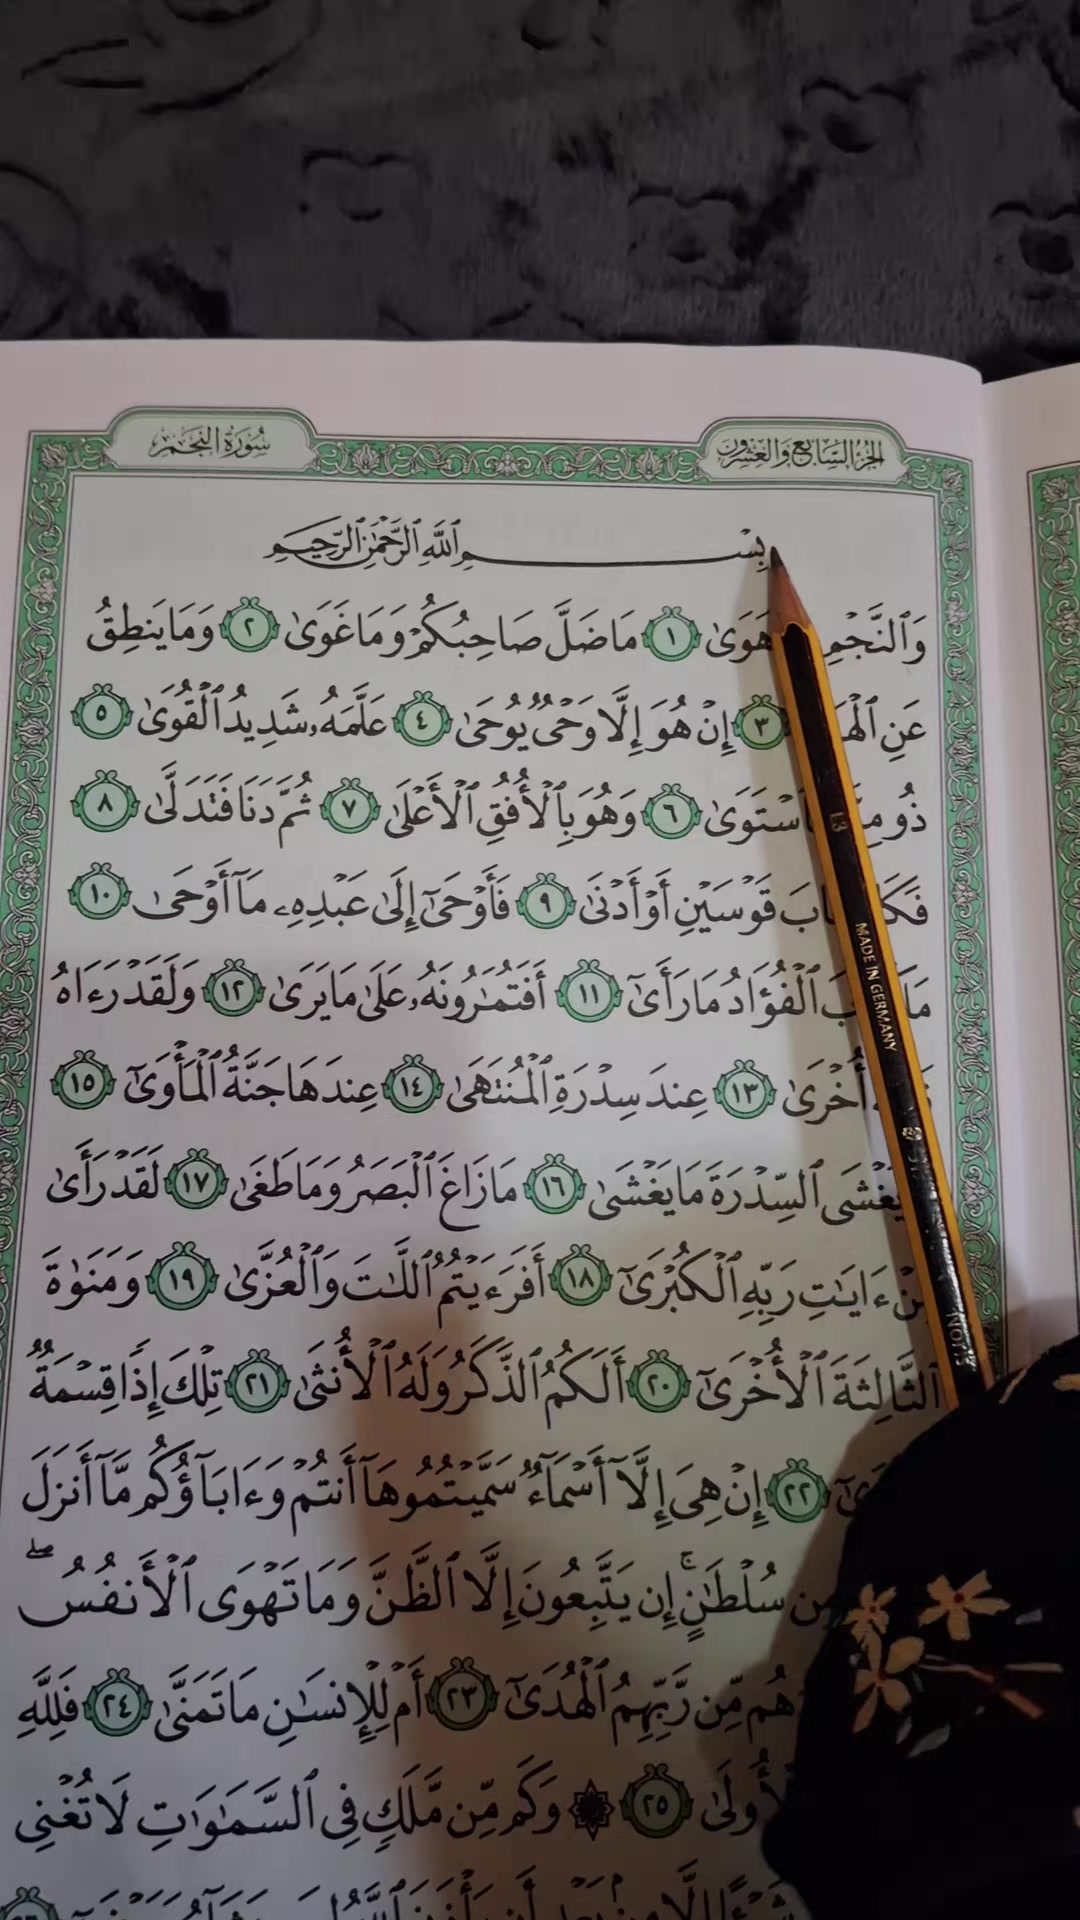 الجزء السابع والعشرون
سورة النجم
بِسْمِ ٱللَّهِ ٱلرَّحْمَٰنِ ٱلرَّحِيمِ
وَٱلنَّجْمِ هَوَىٰ ١ مَا ضَلَّ صَاحِبُكُمْ وَمَا غَوَىٰ ٢ وَمَا يَنطِقُ
عَنِ ٣ إِنْ هُوَ إِلَّا وَحْىٌ يُوحَىٰ ٤ عَلَّمَهُۥ شَدِيدُ ٱلْقُوَىٰ ٥
ذُو ٦ وَهُوَ بِٱلْأُفُقِ ٱلْأَعْلَىٰ ٧ ثُمَّ دَنَا فَتَدَلَّىٰ ٨
قَوْسَيْنِ أَوْ أَدْنَىٰ ٩ فَأَوْحَىٰٓ إِلَىٰ عَبْدِهِۦ مَآ أَوْحَىٰ ١٠
ٱلْفُؤَادُ مَا رَأَىٰٓ ١١ أَفَتُمَٰرُونَهُۥ عَلَىٰ مَا يَرَىٰ ١٢ وَلَقَدْ رَءَاهُ
أُخْرَىٰ ١٣ عِندَ سِدْرَةِ ٱلْمُنتَهَىٰ ١٤ عِندَهَا جَنَّةُ ٱلْمَأْوَىٰٓ ١٥
يَغْشَى ٱلسِّدْرَةَ مَا يَغْشَىٰ ١٦ مَا زَاغَ ٱلْبَصَرُ وَمَا طَغَىٰ ١٧ لَقَدْ رَأَىٰ
مِنْ ءَايَٰتِ رَبِّهِ ٱلْكُبْرَىٰٓ ١٨ أَفَرَءَيْتُمُ ٱللَّٰتَ وَٱلْعُزَّىٰ ١٩ وَمَنَوٰةَ
ٱلثَّالِثَةَ ٱلْأُخْرَىٰٓ ٢٠ أَلَكُمُ ٱلذَّكَرُ وَلَهُ ٱلْأُنثَىٰ ٢١ تِلْكَ إِذًا قِسْمَةٌ
٢٢ إِنْ هِىَ إِلَّآ أَسْمَآءٌ سَمَّيْتُمُوهَآ أَنتُمْ وَءَابَآؤُكُم مَّآ أَنزَلَ
مِن سُلْطَٰنٍ ۚ إِن يَتَّبِعُونَ إِلَّا ٱلظَّنَّ وَمَا تَهْوَى ٱلْأَنفُسُ ۖ
مِّن رَّبِّهِمُ ٱلْهُدَىٰٓ ٢٣ أَمْ لِلْإِنسَٰنِ مَا تَمَنَّىٰ ٢٤ فَلِلَّهِ
٢٥ ۞ وَكَم مِّن مَّلَكٍ فِى ٱلسَّمَٰوَٰتِ لَا تُغْنِى
MADE IN GERMANY
NORIS